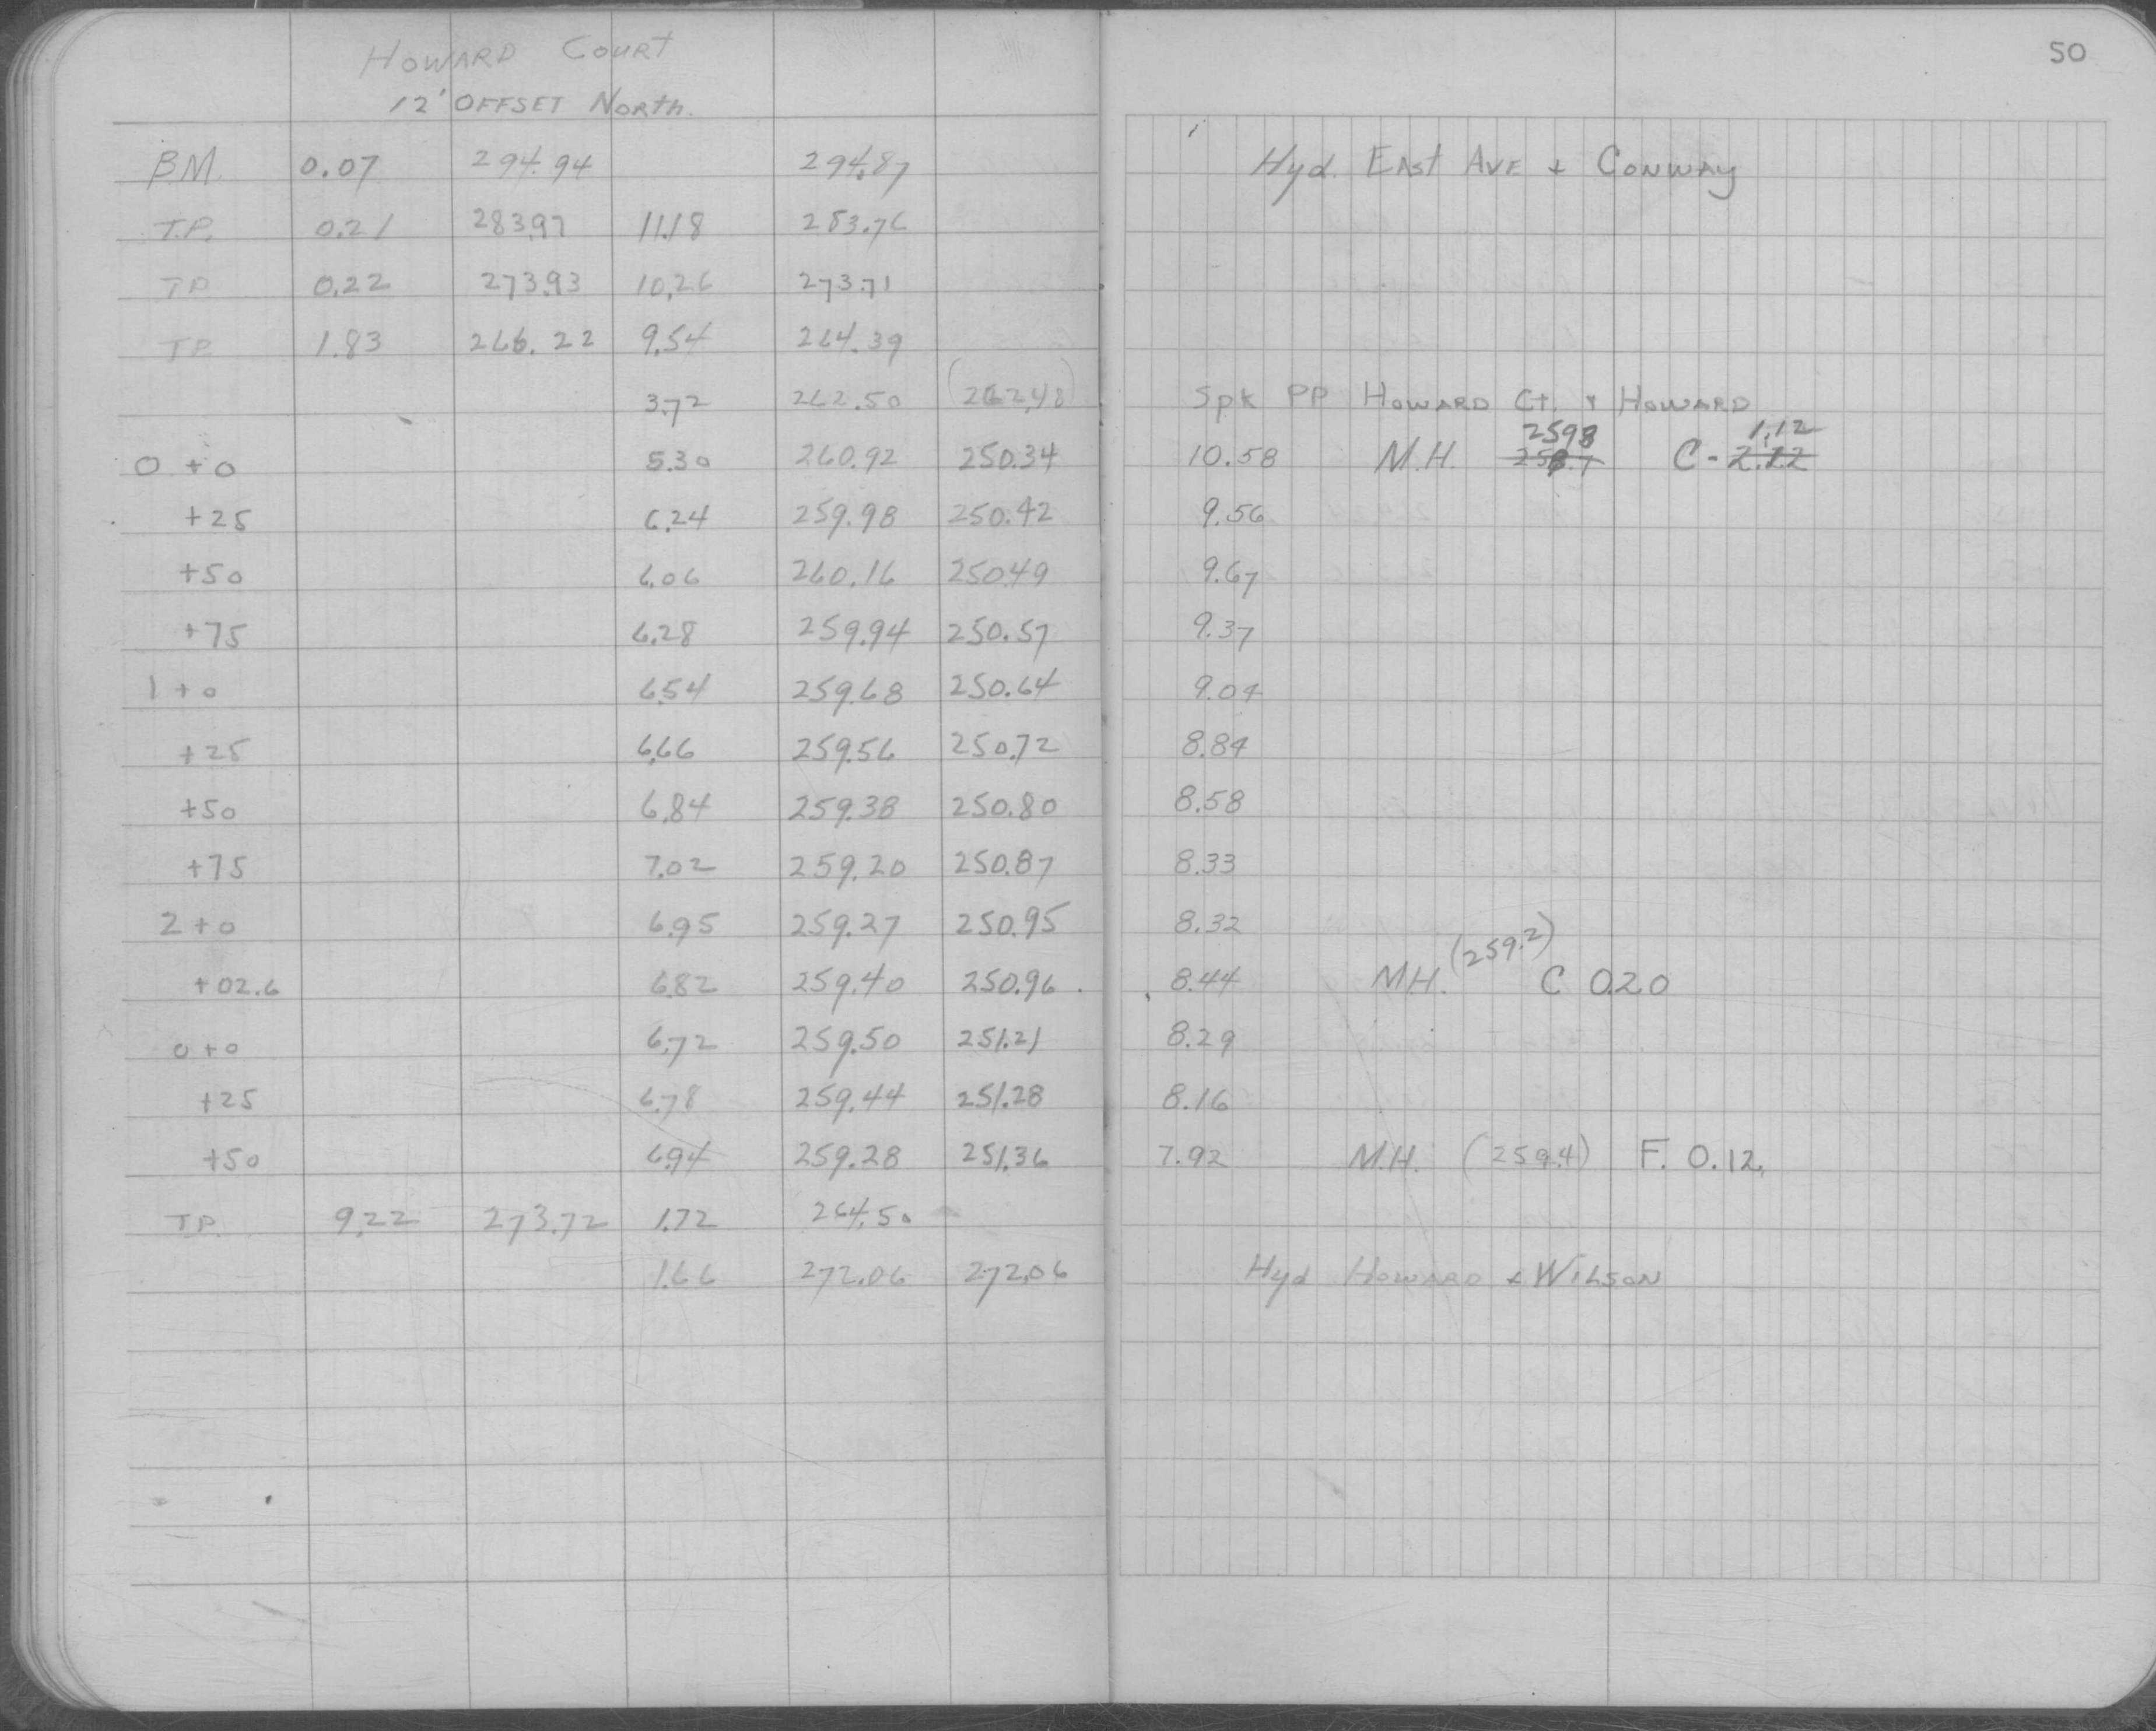 HOWARD COURT
12' OFFSET NORTH.
50
BM. 0.07 294.94 294.87 Hyd. EAST AVE + CONWAY
T.P. 0.21 283.97 11.18 283.76
TP 0.22 273.93 10.26 273.71
TP. 1.83 266.22 9.54 264.39
3.72 262.50 (262.48) Spk PP HOWARD Ct. + HOWARD
2598 1.12
0+0 5.30 260.92 250.34 10.58 M.H. 258.7 C - 2.12
+25 6.24 259.98 250.42 9.56
+50 6.06 260.16 250.49 9.67
+75 6.28 259.94 250.57 9.37
1+0 6.54 259.68 250.64 9.04
+25 6.66 259.56 250.72 8.84
+50 6.84 259.38 250.80 8.58
+75 7.02 259.20 250.87 8.33
2+0 6.95 259.27 250.95 8.32
+02.6 6.82 259.40 250.96 8.44 M.H. (259.2) C 0.20
0+0 6.72 259.50 251.21 8.29
+25 6.78 259.44 251.28 8.16
+50 6.94 259.28 251.36 7.92 M.H. (259.4) F. 0.12
T.P. 9.22 273.72 1.72 264.50
1.66 272.06 272.06 Hyd HOWARD & WILSON